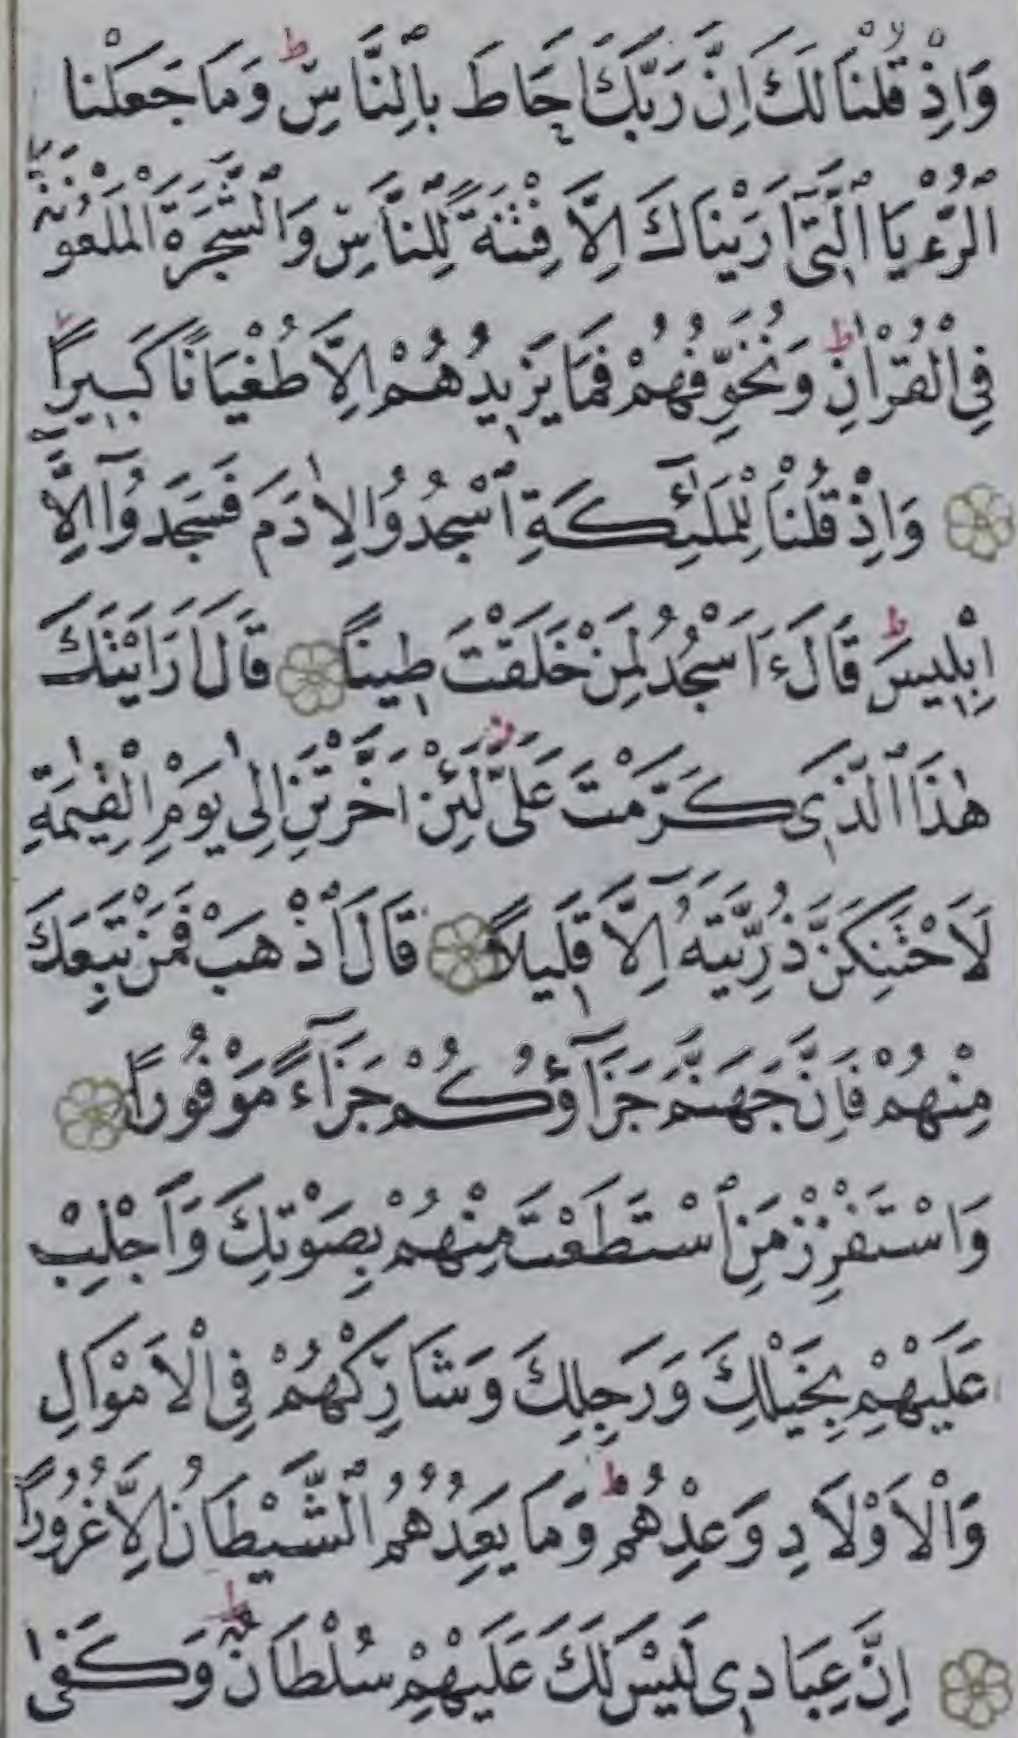 وَاِذْ قُلْنَا لَكَ اِنَّ رَبَّكَ اَحَاطَ بِالنَّاسِۜ وَمَا جَعَلْنَا
الرُّءْيَا الَّتٖٓي اَرَيْنَاكَ اِلَّا فِتْنَةً لِلنَّاسِ وَالشَّجَرَةَ الْمَلْعُونَةَ
فِي الْقُرْاٰنِۜ وَنُخَوِّفُهُمْ فَمَا يَزٖيدُهُمْ اِلَّا طُغْيَانًا كَبٖيرًا
وَاِذْ قُلْنَا لِلْمَلٰٓئِكَةِ اسْجُدُوا لِاٰدَمَ فَسَجَدُٓوا اِلَّٓا
اِبْلٖيسَۜ قَالَ ءَاَسْجُدُ لِمَنْ خَلَقْتَ طٖينًا قَالَ اَرَاَيْتَكَ
هٰذَا الَّذٖي كَرَّمْتَ عَلَيَّ لَئِنْ اَخَّرْتَنِ اِلٰى يَوْمِ الْقِيٰمَةِ
لَاَحْتَنِكَنَّ ذُرِّيَّتَهُٓ اِلَّا قَلٖيلًا قَالَ اذْهَبْ فَمَنْ تَبِعَكَ
مِنْهُمْ فَاِنَّ جَهَنَّمَ جَزَٓاؤُ۬كُمْ جَزَٓاءً مَوْفُورًا
وَاسْتَفْزِزْ مَنِ اسْتَطَعْتَ مِنْهُمْ بِصَوْتِكَ وَاَجْلِبْ
عَلَيْهِمْ بِخَيْلِكَ وَرَجِلِكَ وَشَارِكْهُمْ فِي الْاَمْوَالِ
وَالْاَوْلَادِ وَعِدْهُمْۜ وَمَا يَعِدُهُمُ الشَّيْطَانُ اِلَّا غُرُورًا
اِنَّ عِبَادٖي لَيْسَ لَكَ عَلَيْهِمْ سُلْطَانٌۜ وَكَفٰى